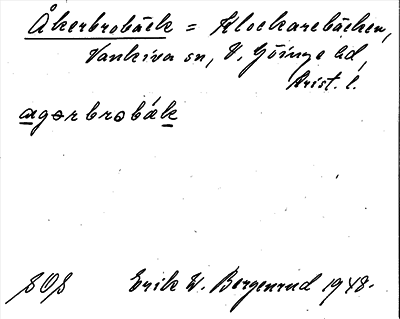 Åkerbrobäck = Klockarebäcken,
Vankiva sn, V. Göinge hd,
Krist. l.
agərbrobæk
SOS Erik W. Bergenrud 1948.